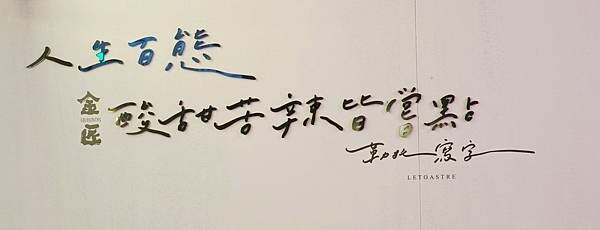 人生百態
金匠
酸甜苦辣皆嘗點
勒托 寫字
LETOASTRE